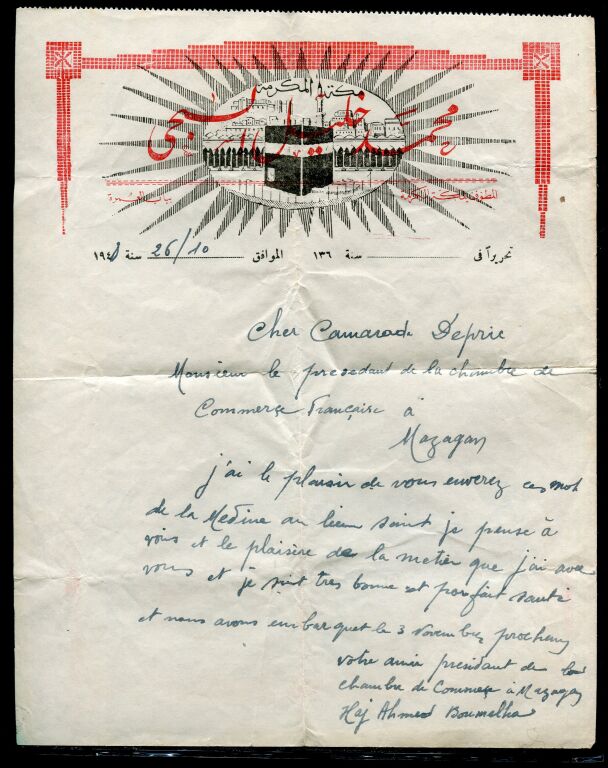 مكة المكرمة
محمد خليل
المطوف بمكة المكرمة
بباب العمرة
تحريراً فى سنة ١٣٦ الموافق 26/10 سنة ١٩٤8
Cher Camarade Deprie
Monsieur le presedant de la chambre de
Commerce Française à
Mazagan
j'ai le plaisir de vous enverez ces mot
de la Medine au lieu saint je pense à
vous et le plaisère de la metier que j'ai avec
vous et je suit tres bonne et parfait santé
et nous avons embarquet le 3 Novembez prochens
votre amie presidant de la
chambre de Commerce à Mazagan
Haj Ahmed Boumelha